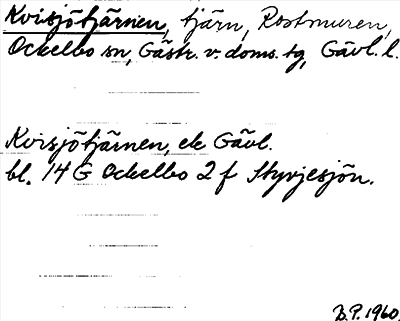 Kvisjötjärnen, tjärn, Rostmuren,
Ockelbo sn, Gästr. v. doms. tg, Gävl. l.
Kvisjötjärnen, ek Gävl.
bl. 14 G Ockelbo 2 f Styvjesjön.
B.P. 1960.